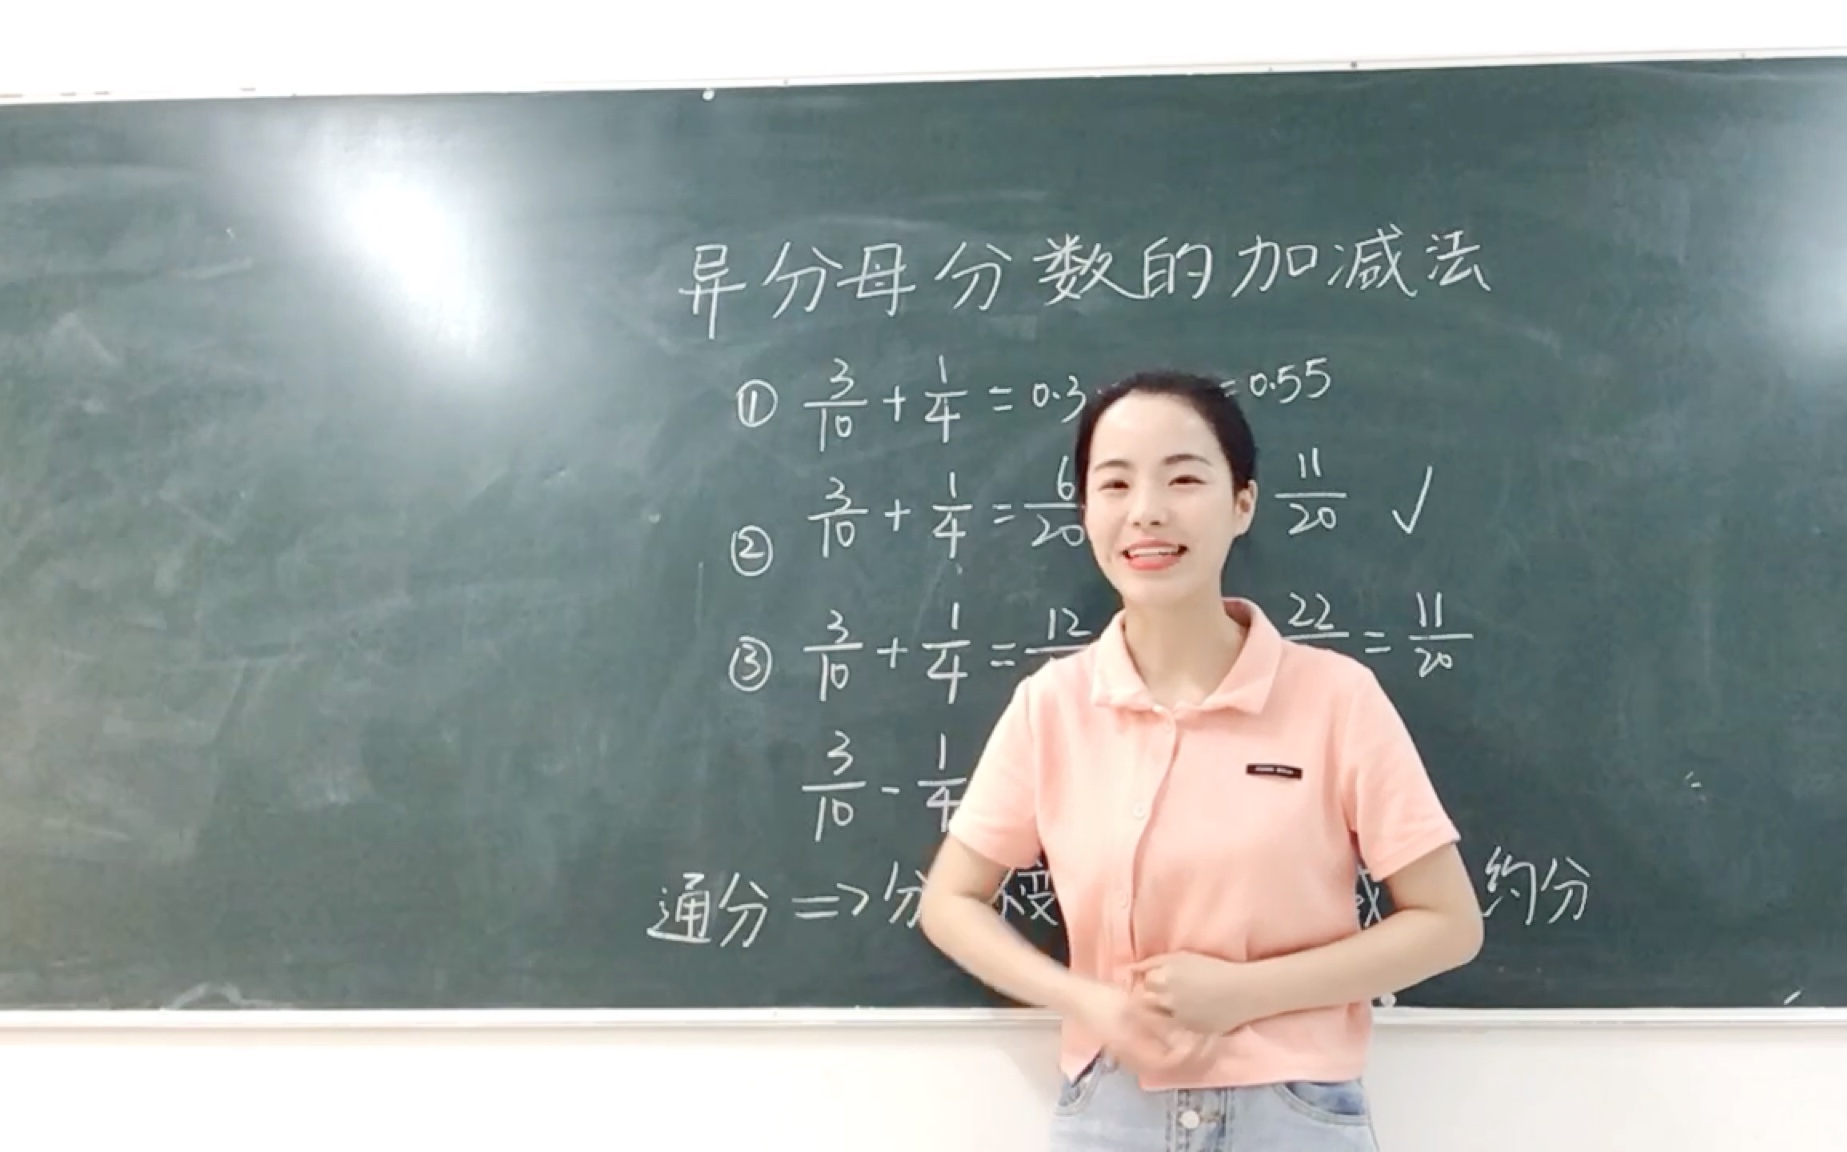 异分母分数的加减法
① 3/10 + 1/4 = 0.3 = 0.55
② 3/10 + 1/4 = 6/20 11/20 ✓
③ 3/10 + 1/4 = 12 22 = 11/20
3/10 - 1/4
通分 => 分 变 减 约分